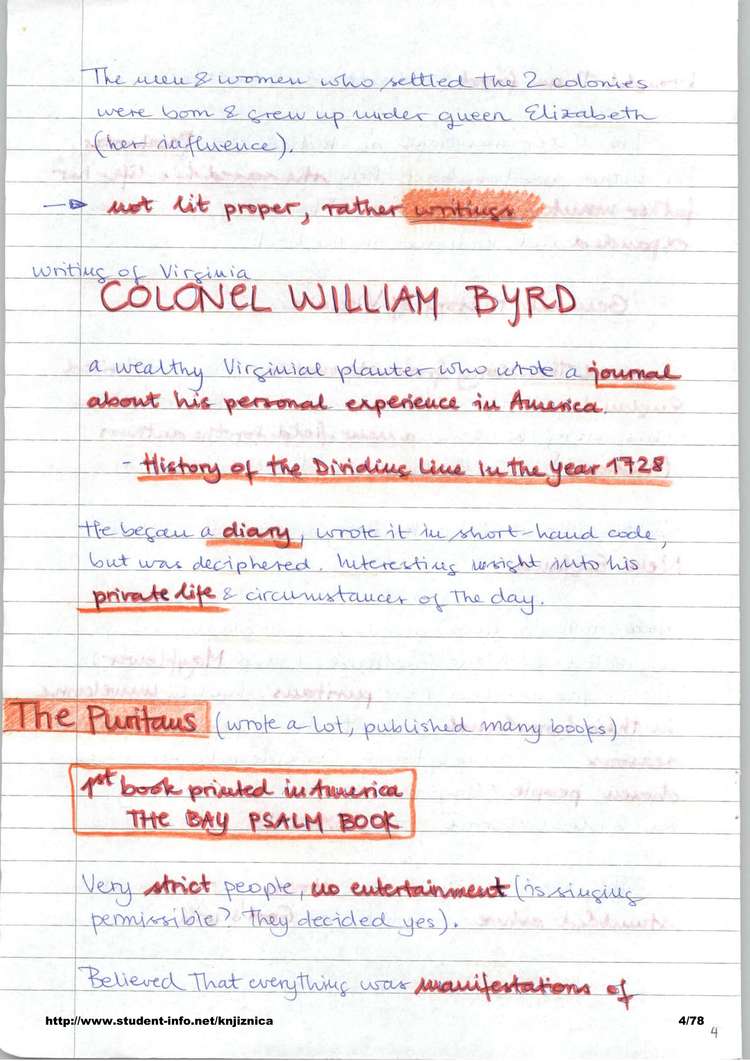 The men & women who settled the 2 colonies
were born & grew up under queen Elizabeth
(her influence).
→ not lit proper, rather writings
writing of Virginia
COLONEL WILLIAM BYRD
a wealthy Virginial planter who wrote a journal
about his personal experience in America.
- History of the Dividing Line in the year 1728
He began a diary, wrote it in short-hand code,
but was deciphered. Interesting insight into his
private life & circumstances of the day.
The Puritans (wrote a lot, published many books)
1st book printed in America
THE BAY PSALM BOOK
Very strict people, no entertainment (is singing
permissible? They decided yes).
Believed that everything was manifestations of
http://www.student-info.net/knjiznica 4/78
4